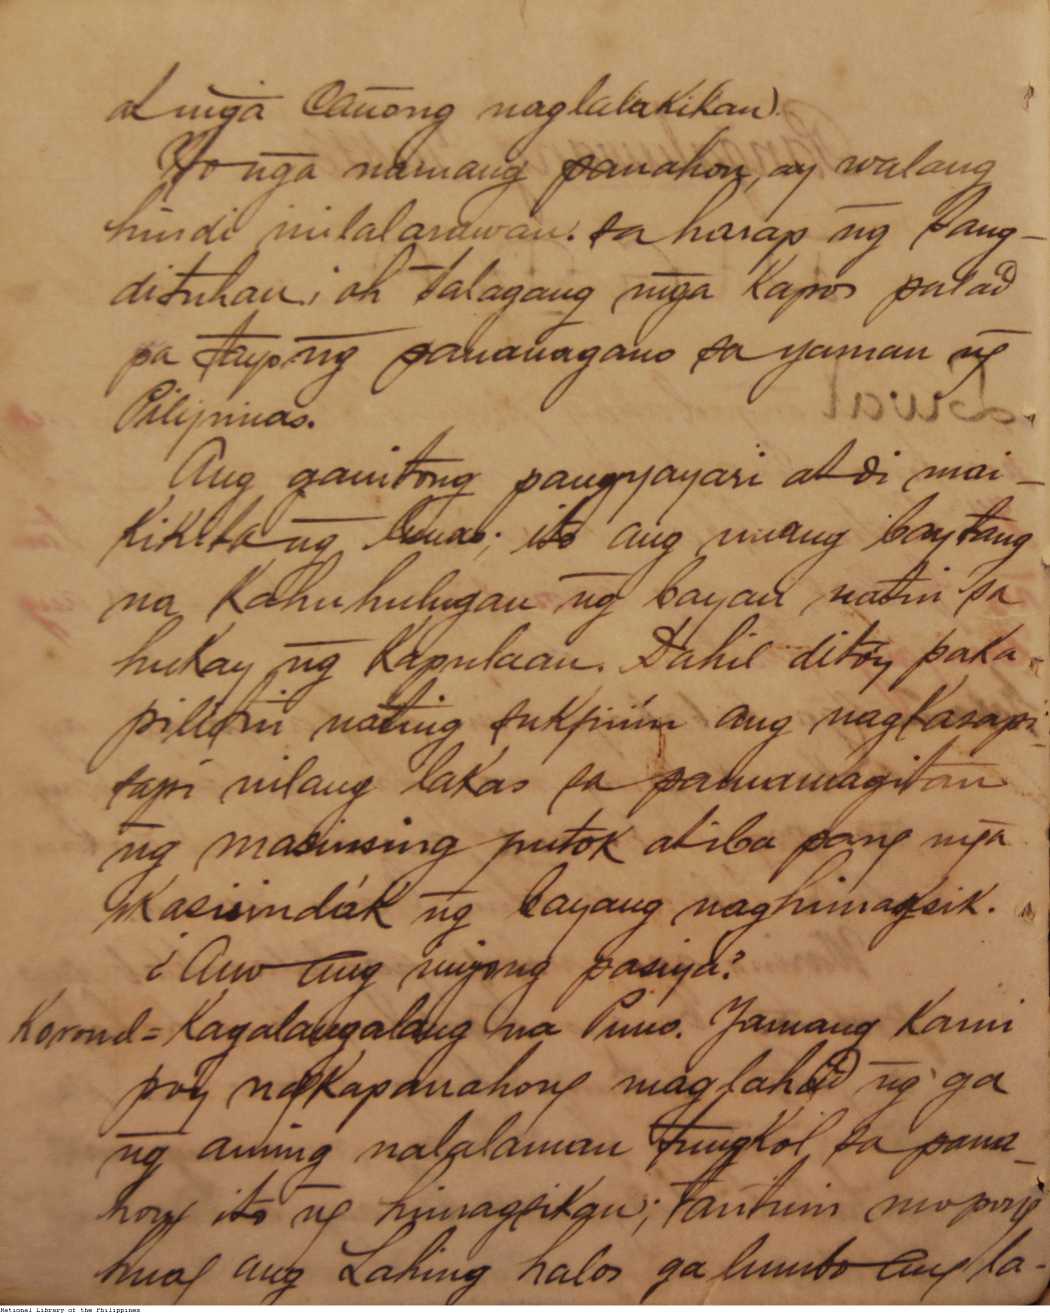 at m̃ga Cauong naglalakihan).
Ito ñga namang panahon, ay walang
hindi inilalarawan sa harap ñg Sang-
dituhan; oh talagang m̃ga Kapos palad
pa tayo ñg pananagano sa yaman ñg
Pilipinas.
Ang ganitong pangyayari at di mai-
kikita ñg lunas; ito ang unang baytang
na Kahuhulugan ñg bayan natin sa
hukay ñg Kapulaan. Dahil ditoy paka-
piliting nating sukpiin ang nagsasapi-
sapi nilang lakas sa pamamagitan
ñg masinsing putok at iba pang m̃ga
Kasisindák ñg bayang naghimagsik.
¿Ano ang inyong pasiya?
Koronel = Kagalanggalang na Puno. Yamang Kami
poy nagkapanahong maglahad ñg ga
ñg aming nalalaman tungkol sa pana-
hong ito ñg himagsikan; mo pong
ang Lahing halos ga lumbo ang la-
National Library of the Philippines